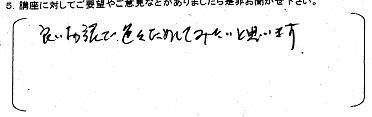 5. 講座に対してご要望やご意見などがありましたら是非お聞かせ下さい。
良い勉強で色々ためしてみたいと思います